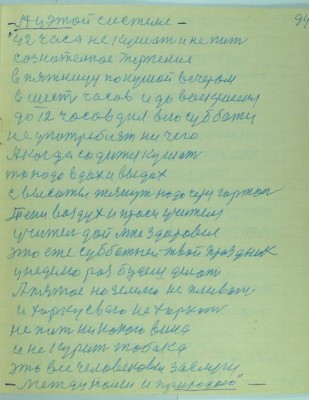 94
— А у этой системе —
42 часа не кушат и не пит
сознателное терпения
в пятницу покушой вечером
в шесть часов и до воскрисения
до 12 часов дня вчо суббати
не употребляят ни чего
А когда садится кушат
то надо вдох и выдох
с високти тянут надо через гортан
Тени воздух и проси учителя
учител дай мне здоровия
это еже субботней твой праздник
у неделю раз будеш делат
А пятое на землю не пливат
и харкусвого не харкат
не пит ни какого вина
и не курит тобака
это все человековы заслуги
— Между нами и природою" —